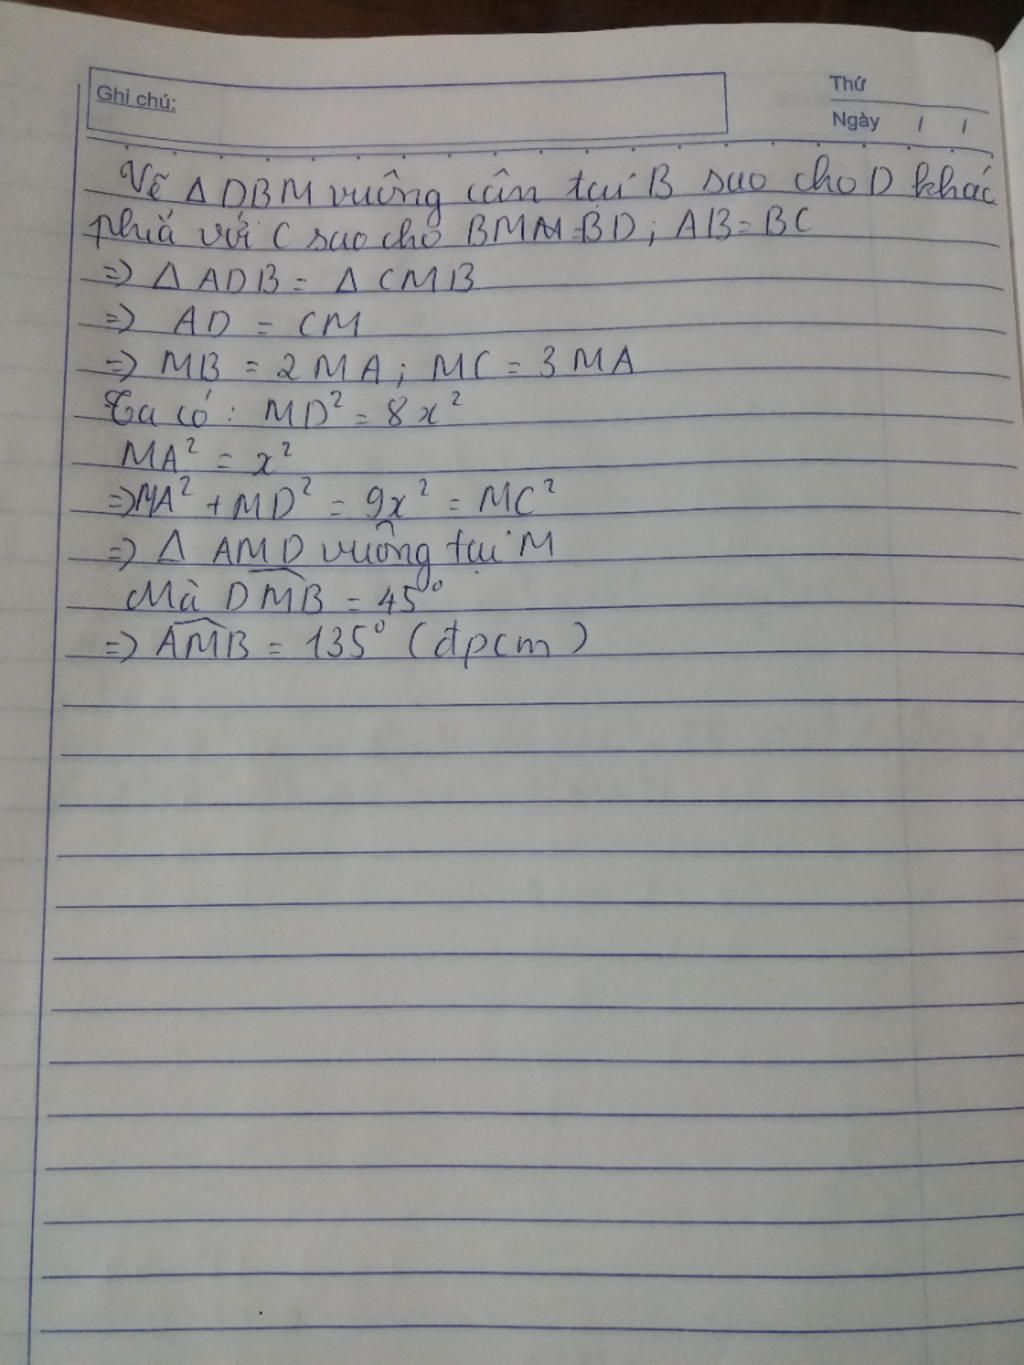 Ghi chú:
Thứ
Ngày / /
Vẽ Δ DBM vuông cân tại B sao cho D khác
phía với C sao cho BM=BD; AB=BC
=> Δ ADB = Δ CMB
=> AD = CM
=> MB = 2MA; MC = 3MA
Ta có: MD² = 8x²
MA² = x²
=> MA² + MD² = 9x² = MC²
=> Δ AMD vuông tại M
Mà \widehat{DMB} = 45°
=> \widehat{AMB} = 135° (đpcm)